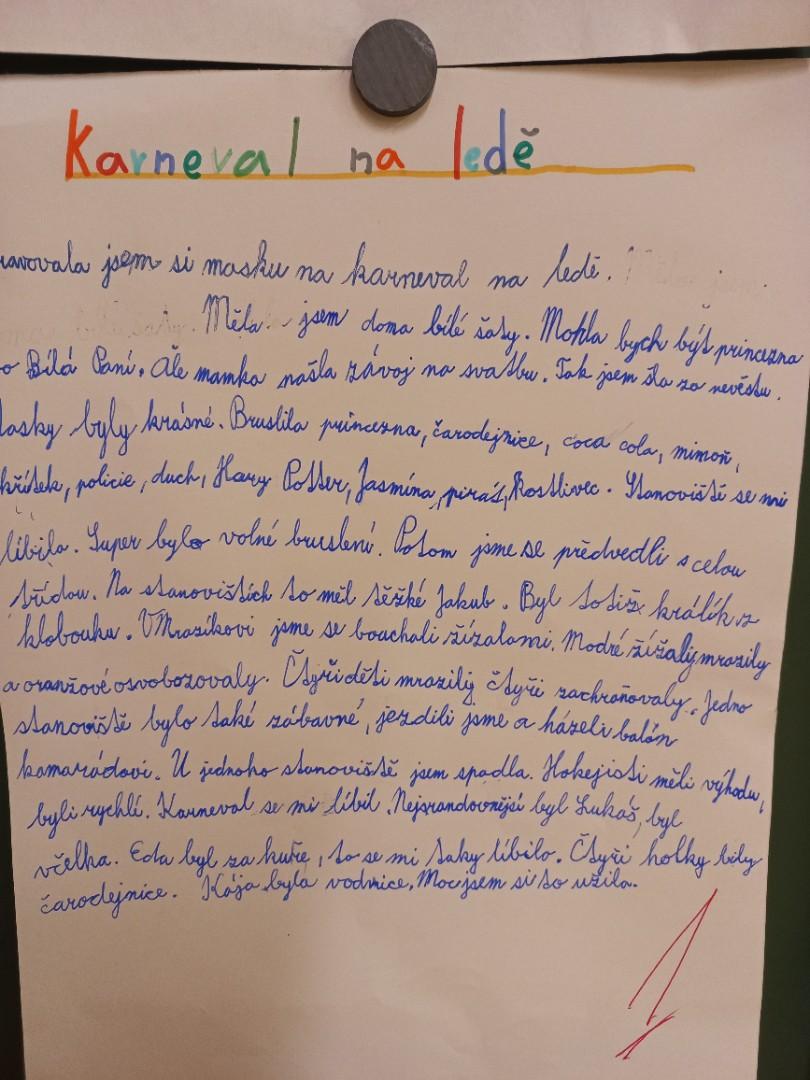 Karneval na ledě
ravovala jsem si masku na karneval na ledě.
Měla jsem doma bílé šaty. Mohla bych být princezna
o Bílá Paní. Ale mamka našla závoj na svatbu. Tak jsem šla za nevěstu.
asky byly krásné. Bruslila princezna, čarodejnice, coca cola, mimoň,
křítek, policie, duch, Hary Potter, Jasmína, pirát, Kostlivec. Stanoviště se mi
líbila. Super bylo volné bruslení. Potom jsme se předvedli s celou
třídou. Na stanovištích to měl těžké Jakub. Byl totiž králík z
klobouku. V Mrazíkovi jsme se bouchali žížalami. Modré žížaly mrazily
a oranžové osvobozovaly. Čtyři děti mrazily čtyři zachraňovaly. Jedno
stanoviště bylo také zábavné, jezdili jsme a házeli balón
kamarádovi. U jednoho stanoviště jsem spadla. Hokejisti měli výhodu,
byli rychlí. Karneval se mi líbil. Nejsrandovnější byl Lukáš, byl
včelka. Eda byl za kuře, to se mi taky líbilo. Čtyři holky byly
čarodejnice. Kája byla vodnice. Moc jsem si to užila.
1